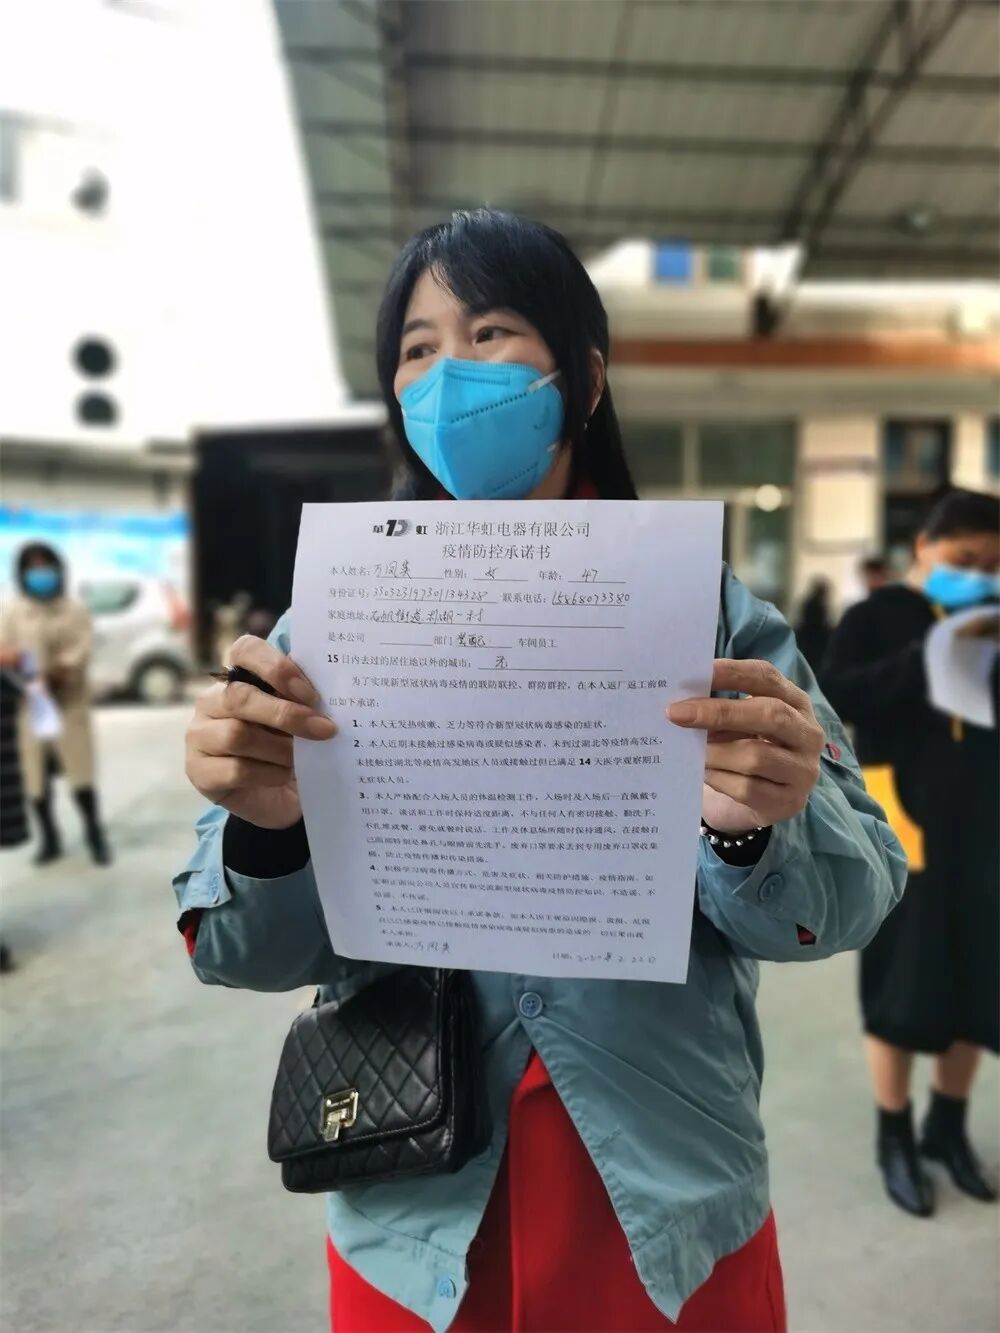 华虹 浙江华虹电器有限公司
疫情防控承诺书
本人姓名：万凤英 性别：女 年龄：47
身份证号：330323197301184328 联系电话：15868073380
家庭地址：石帆街道 一村
是本公司 部门 装配 车间员工
15日内去过的居住地以外的城市：无
为了实现新型冠状病毒疫情的联防联控、群防群控，在本人返厂返工前做
出如下承诺：
1、本人无发热咳嗽、乏力等符合新型冠状病毒感染的症状。
2、本人近期未接触过感染病毒或疑似感染者，未到过湖北等疫情高发区，
未接触过湖北等疫情高发地区人员或接触过但已满足14天医学观察期且
无症状人员。
3、本人严格配合入场人员的体温检测工作，入场时及入场后一直佩戴专
用口罩，谈话和工作时保持适度距离，不与任何人有密切接触，勤洗手，
不扎堆就餐，避免就餐时说话，工作及休息场所随时保持通风，在接触自
己面部特别是鼻孔与眼睛前先洗手，废弃口罩要求丢到专用废弃口罩收集
桶，防止疫情传播和传染措施。
4、积极学习病毒传播方式、危害及症状、相关防护措施、疫情指南，如
实和正面向公司人员宣传和交流新型冠状病毒疫情防控知识，不造谣、不
信谣、不传谣。
5、本人已详细阅读以上承诺条款，如本人因主观原因隐报、谎报、乱报
自己已感染疫情已接触疫情感染病毒或疑似病患的造成的一切后果由我
本人承担。
承诺人：万凤英 日期：2020年2.22日